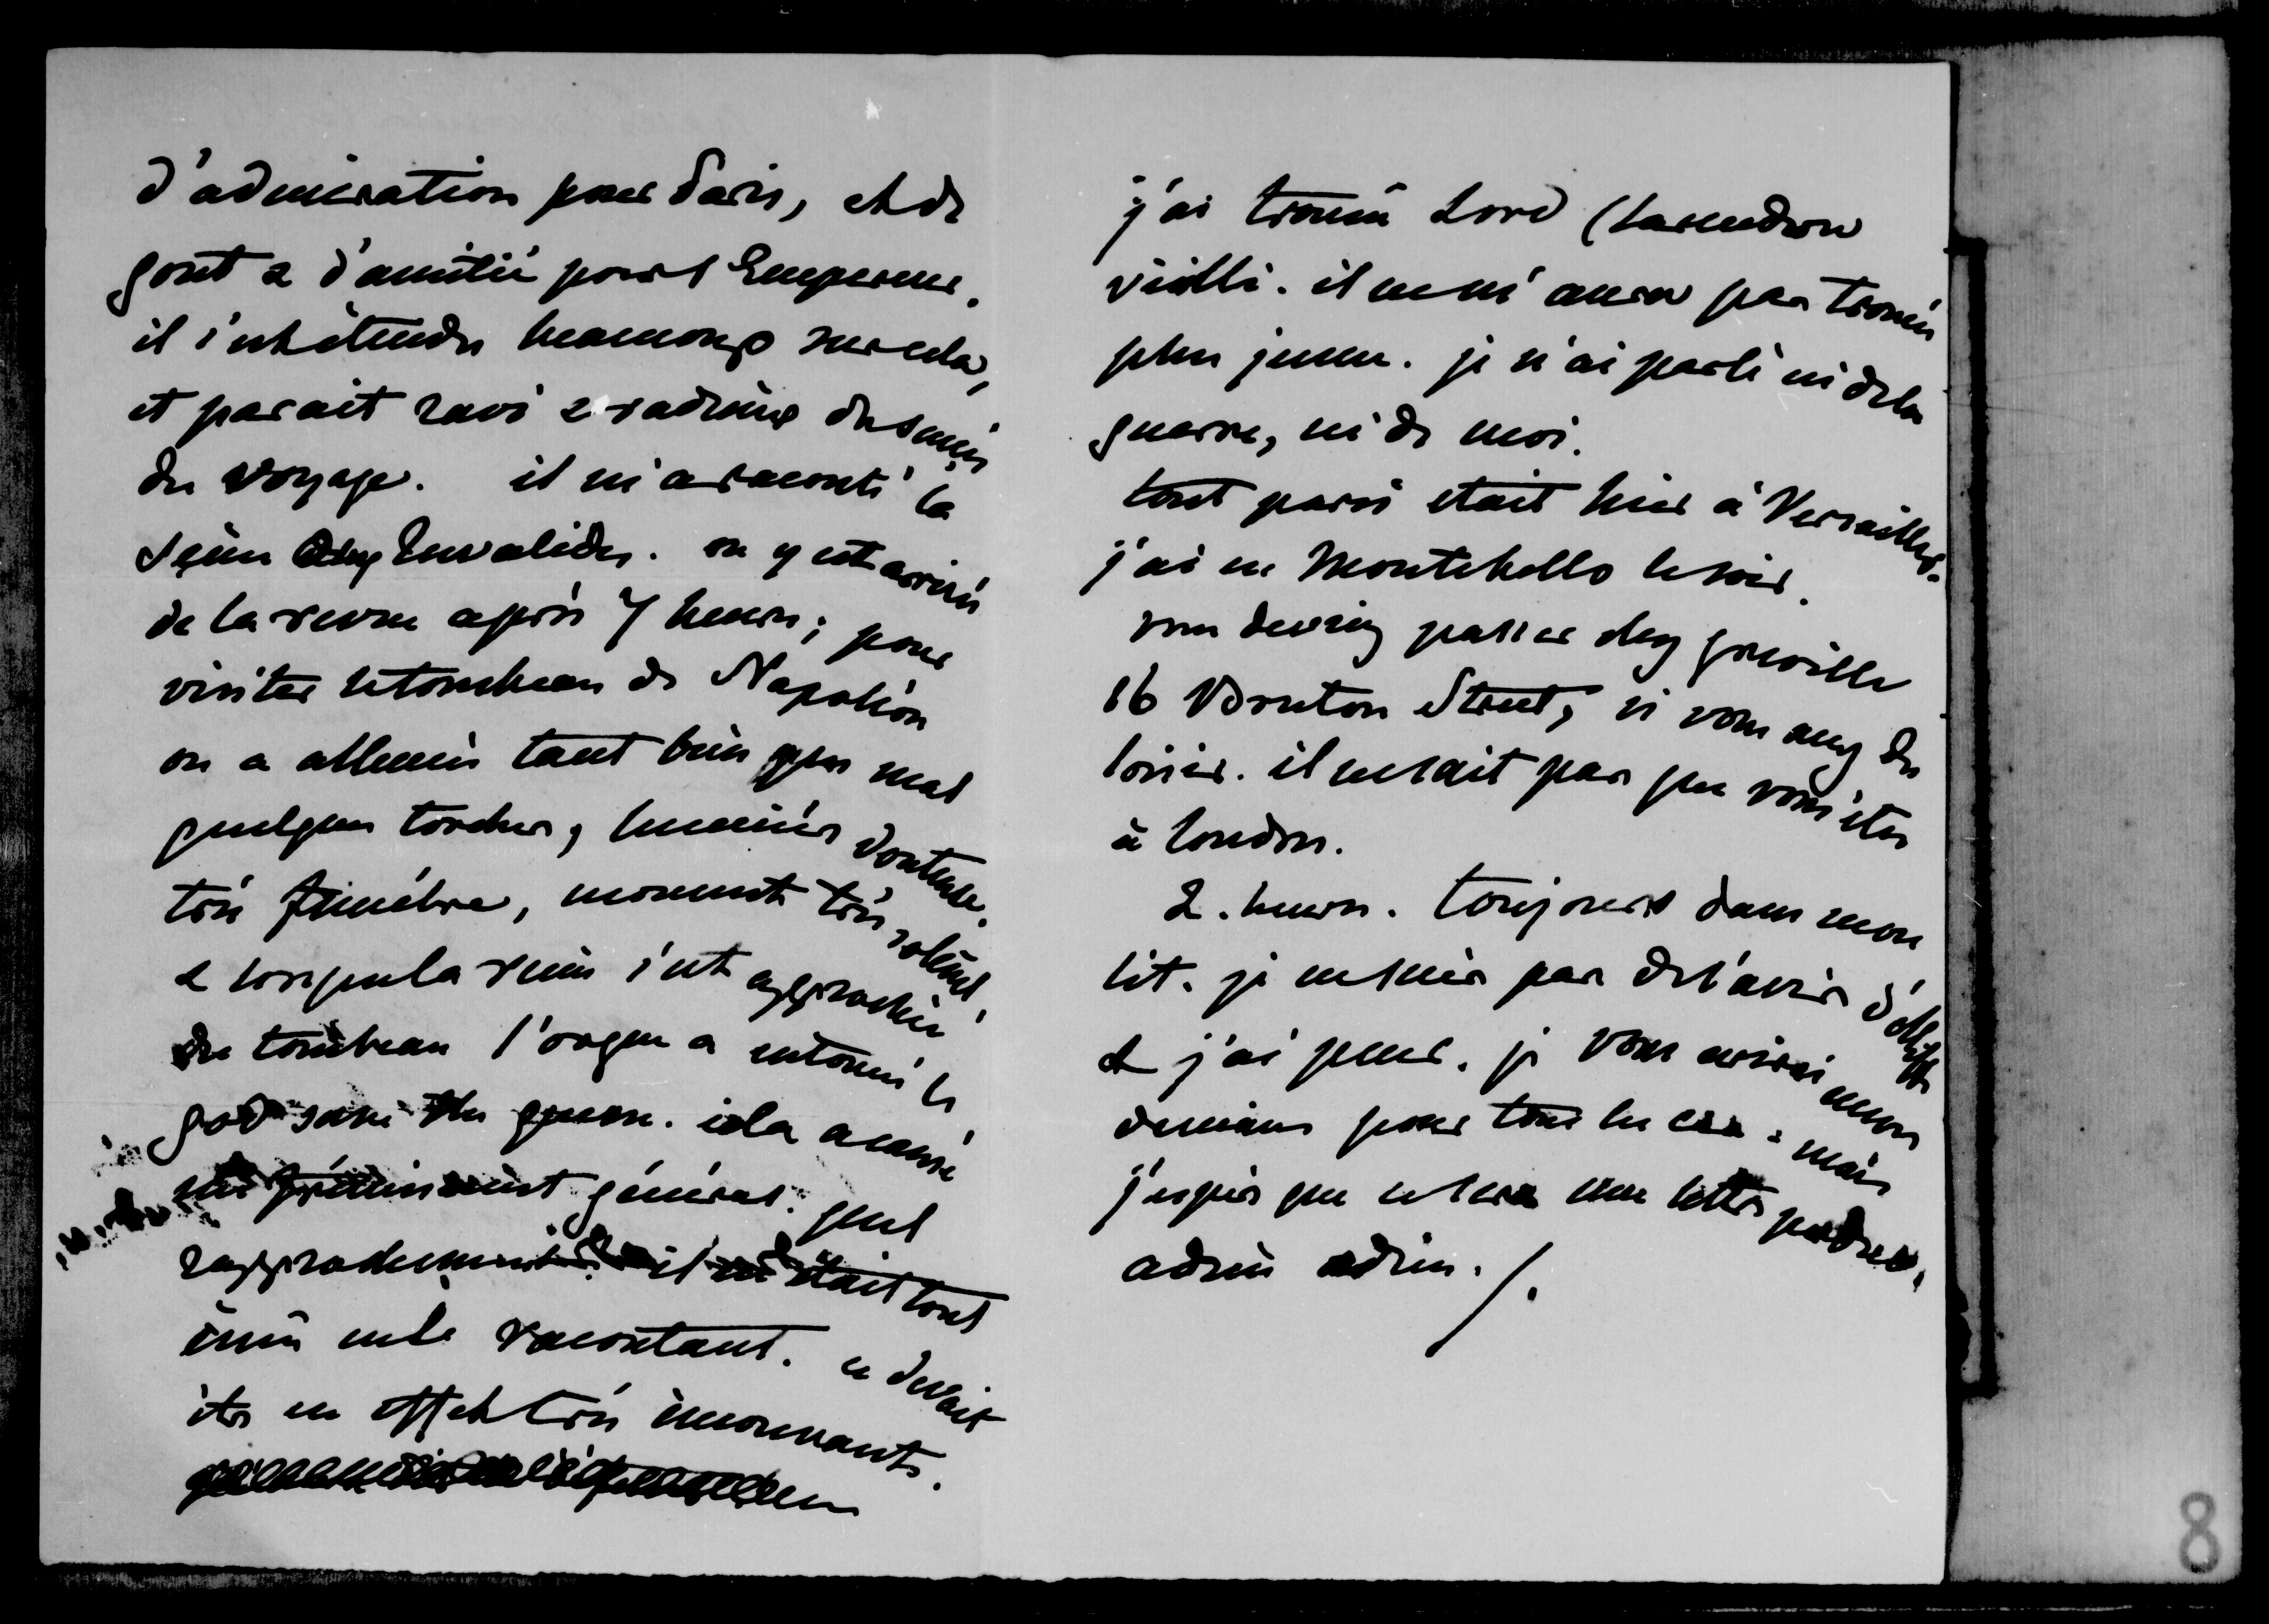 d'admiration pour Paris, et de
gout & d'amitié pour l'Empereur.
il s'est étendu beaucoup sur cela,
et parait ravi & radieux du succès
du voyage. il m'a raconté la
scène des Invalides. on y est arrivé
de la revue après 7 heures; pour
visiter le tombeau de Napoléon
on a allumé tant bien que mal
quelques torches, lumière douteuse,
très funèbre, moment très solemnel,
& lorsque la reine s'est approchée
du tombeau l'orgue a entonné le
god save the queen. cela a causé
un frémissement général. quel
rapprochement. il était tout
ému en le racontant. ce devait
être en effet très émouvant.
j'ai trouvé Lord Clarendon
vieilli. il ne m'aura pas trouvé
plus jeune. je n'ai parlé ni de la
guerre, ni de moi.
tout paris etait hier à Versailles.
j'ai eu Montebello le soir.
vous devriez passer chez greville
16 Bruton Street, si vous avez du
loisir. il ne sait pas que vous êtes
à Londres.
2. heures. toujours dans mon
lit. je ne suis pas de l'avis d'
& j'ai peur. je vous ecrirai encore
demain pour tous les cas. mais
j'espère que ce sera une lettre perdue.
adieu adieu. /.
8